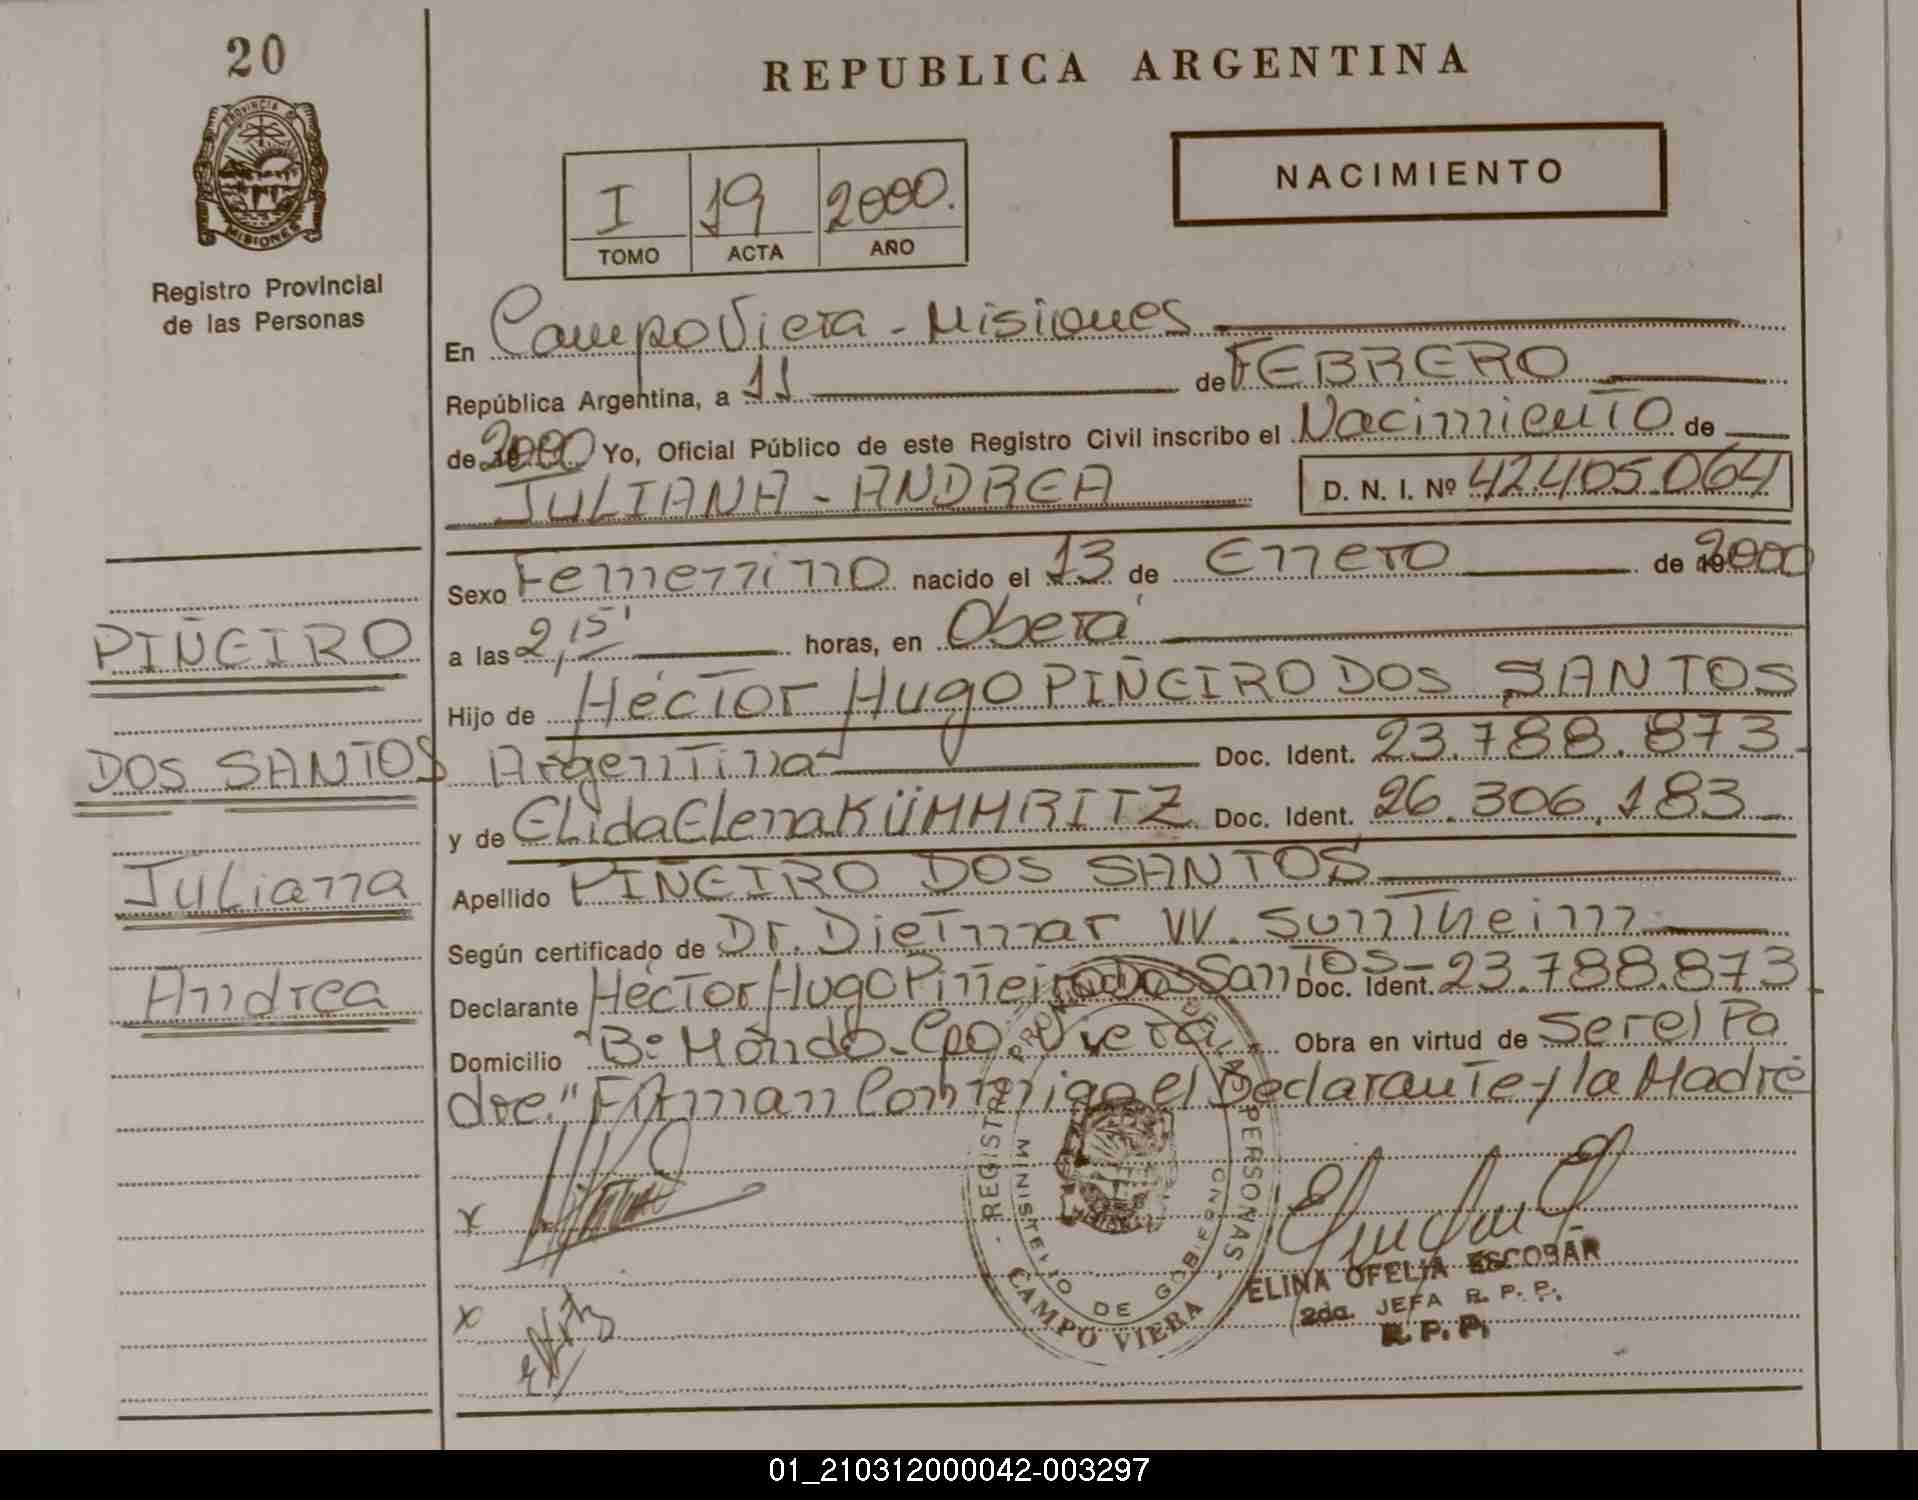 20
REPUBLICA ARGENTINA
PROVINCIA DE
MISIONES
Registro Provincial
de las Personas
NACIMIENTO
I 19 2000.
TOMO ACTA AÑO
En Campo Viera - Misiones
República Argentina, a 11 de FEBRERO
de 2000 Yo, Oficial Público de este Registro Civil inscribo el Nacimiento de
JULIANA - ANDREA D. N. I. Nº 42.405.064
Sexo Femenino nacido el 13 de Enero de 2000
a las 2,15' horas, en Oberá
Hijo de Héctor Hugo PIÑEIRO DOS SANTOS
Argentina Doc. Ident. 23.788.873
y de Elida Elena KÜMMRITZ Doc. Ident. 26.306.183
Apellido PIÑEIRO DOS SANTOS
Según certificado de Dr. Dietmar W. Sontheim
Declarante Héctor Hugo Piñeiro dos Santos - Doc. Ident. 23.788.873
Domicilio "Bº Mondo - Cpo. Viera Obra en virtud de Ser el Pa
dre." Firman Conmigo el Declarante y la Madre
PIÑEIRO
DOS SANTOS
Juliana
Andrea
x
x
REGISTRO PROVINCIAL DE LAS PERSONAS
MINISTERIO DE GOBIERNO
CAMPO VIERA
ELINA OFELIA ESCOBAR
2da. JEFA R. P. P.
R. P. P.
01_210312000042-003297